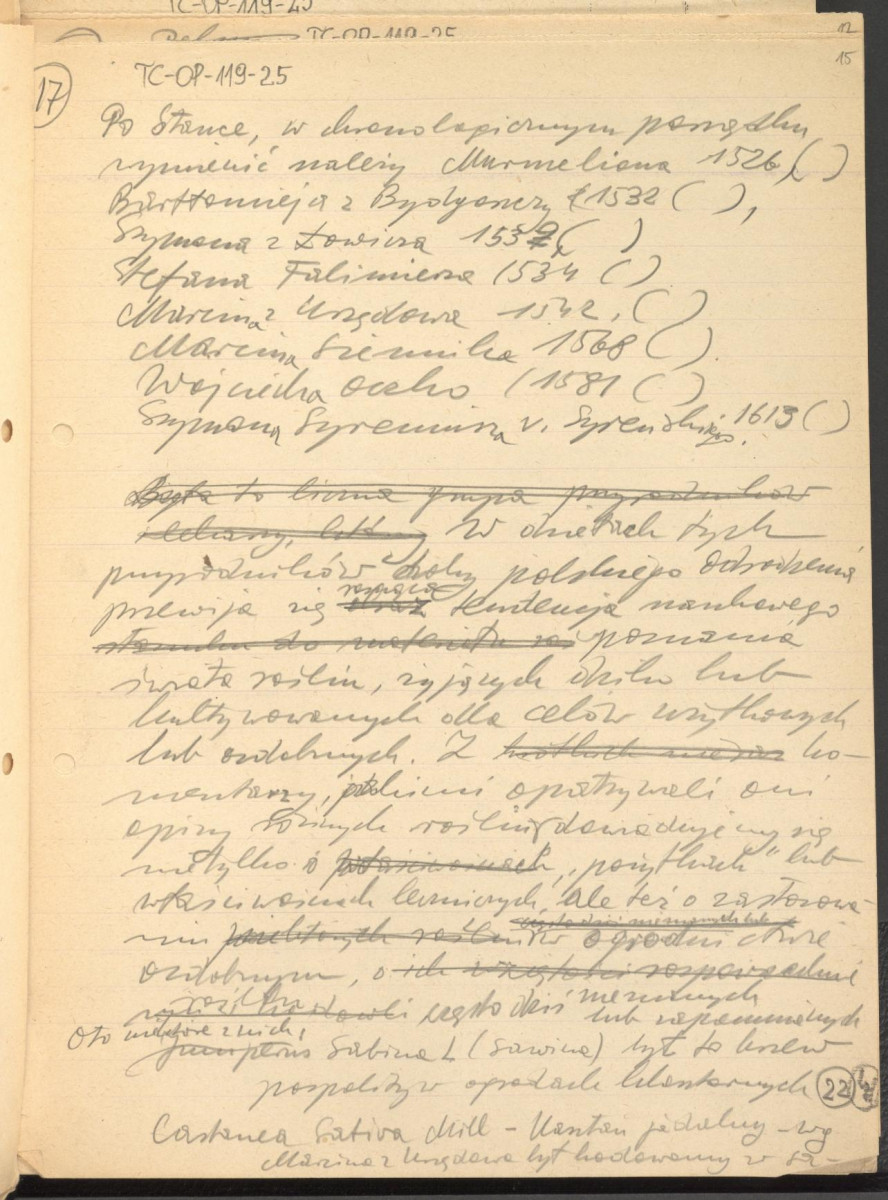 TC-OP-119-25
TC-OP-119-25
12
15
17
TC-OP-119-25
Po Stance, w chronologicznym porządku
wymienić należy Murmeliusa 1526, ( )
Bartłomieja z Bydgoszczy (1532 ( ),
Szymona z Łowicza 1532, ( )
Stefana Falimirza (1534 ( )
Marcina z Urzędowa 1542, ( )
Marcina Siennika 1568 ( ).
Wojciecha Oczko (1581 ( )
Szymona Syreniusza v. Syreńskiego. 1613 ( )
Była to liczna grupa przyrodników
W dziełach tych
przyrodników doby polskiego odrodzenia
przewija się oraz tendencja naukowego
poznania
świata roślin, żyjących dziko lub
kultywowanych dla celów użytkowych
lub ozdobnych. Z ko-
mentarzy, jakimi opatrywali oni
opisy różnych roślin, dowiadujemy się
nietylko o właściwościach, „pożytkach" lub
właściwościach leczniczych, ale też o zastosowa-
często dziś nieznanych lub
niu w ogrodnictwie
ozdobnym, o
roślin często dziś nieznanych
lub zapomnianych
Oto niektóre z nich:
Juniperus Sabina L (Sawina) był to krzew
pospolity w ogrodach klasztornych 22
Castanea Sativa Mill - Kasztan jadalny - wg
Marcina z Urzędowa był hodowany w sa-